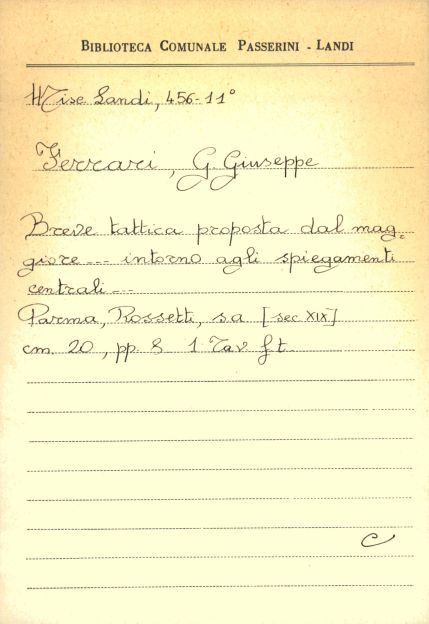 BIBLIOTECA COMUNALE PASSERINI - LANDI
Misc Landi, 456-11°
Ferrari, G. Giuseppe
Breve tattica proposta dal mag-
giore --- intorno agli spiegamenti
centrali ---
Parma, Rossetti, s a [sec XIX]
cm. 20, pp. 8 1 Tav f t
C